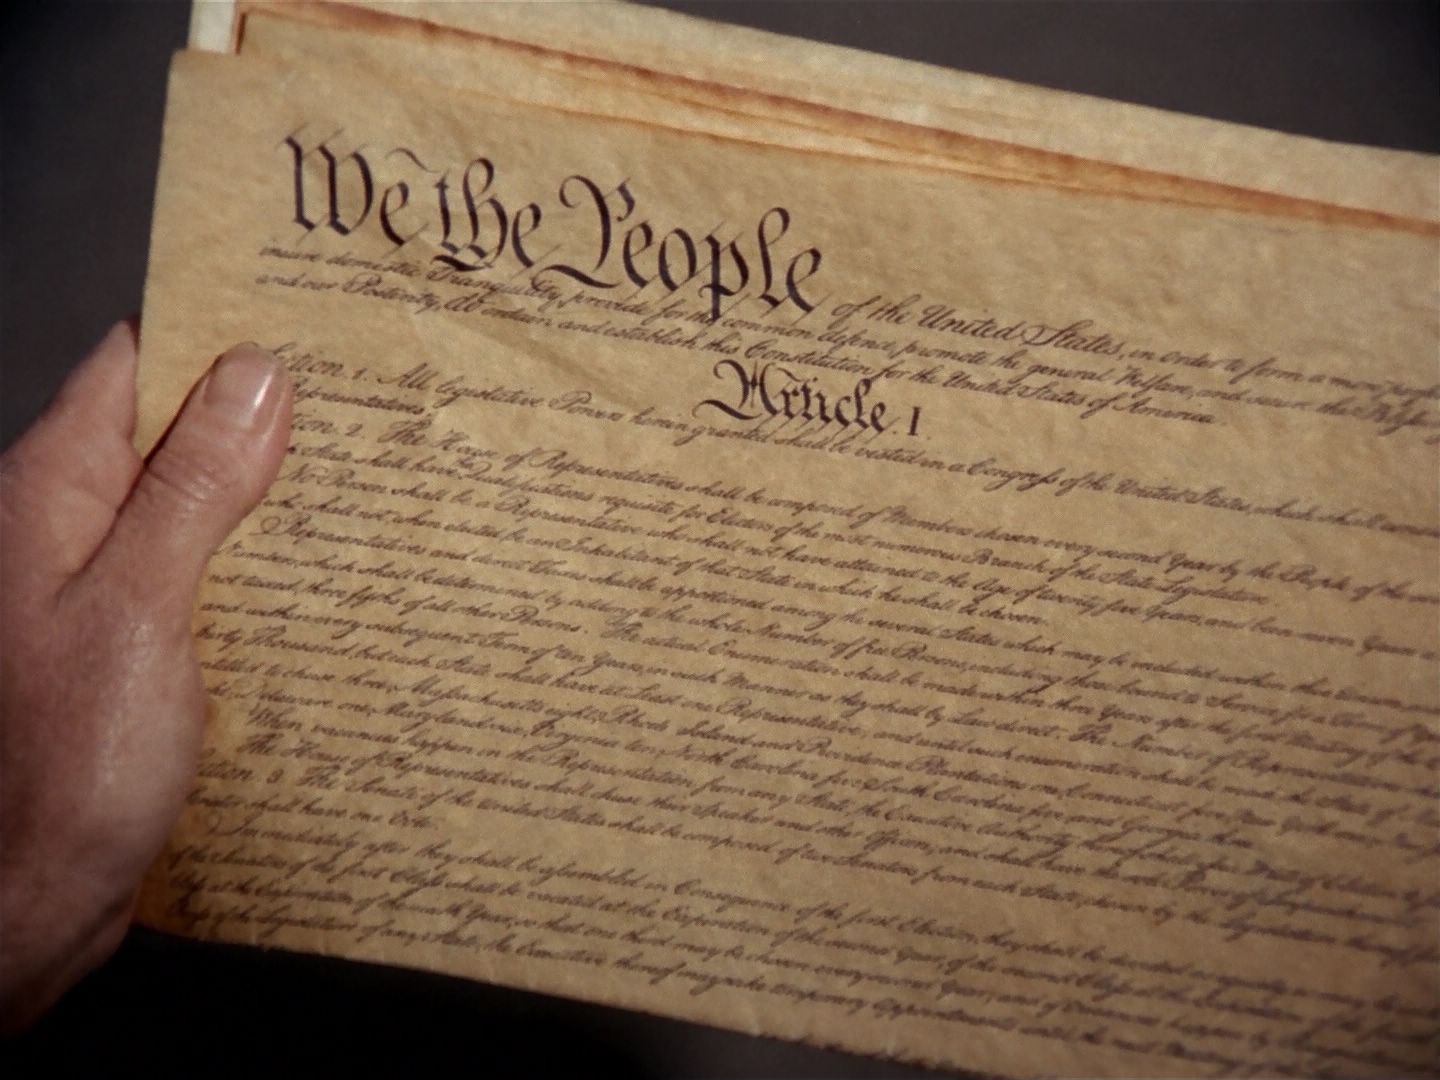 We the People of the United States, in order to form a more perfect
insure domestic Tranquility, provide for the common defence, promote the general Welfare, and secure the
and our Posterity, do ordain and establish this Constitution for the United States of America.
Article. I.
Section. 1. All legislative Powers herein granted shall be vested in a Congress of the United States, which shall
Representatives.
Section. 2. The House of Representatives shall be composed of Members chosen every second Year by the People of the
State shall have the Qualifications requisite for Electors of the most numerous Branch of the State Legislature.
No Person shall be a Representative who shall not have attained to the Age of twenty five Years, and been seven Years
who shall not, when elected, be an Inhabitant of that State in which he shall be chosen.
Representatives and direct Taxes shall be apportioned among the several States which may be included within this
Numbers, which shall be determined by adding to the whole Number of free Persons, including those bound to Service for a Term of
not taxed, three fifths of all other Persons. The actual Enumeration shall be made within three Years after the first Meeting of the
and within every subsequent Term of ten Years, in such Manner as they shall by Law direct. The Number of Representatives
thirty Thousand, but each State shall have at Least one Representative; and until such enumeration shall be made, the State of
entitled to chuse three, Massachusetts eight, Rhode Island and Providence Plantations one, Connecticut five, New York
Delaware one, Maryland six, Virginia ten, North Carolina five, South Carolina five, and Georgia three.
When vacancies happen in the Representation from any State, the Executive Authority thereof shall
The House of Representatives shall chuse their Speaker and other Officers; and shall have the sole Power of
Section. 3. The Senate of the United States shall be composed of two Senators from each State, chosen by the Legislature
Senator shall have one Vote.
Immediately after they shall be assembled in Consequence of the first Election, they shall be divided
of the Senators of the first Class shall be vacated at the Expiration of the second Year, of the second Class at the Expiration of the
Class at the Expiration of the sixth Year, so that one third may be chosen every second Year; and if Vacancies happen by
of the Legislature of any State, the Executive thereof may make temporary Appointments until the next Meeting of the